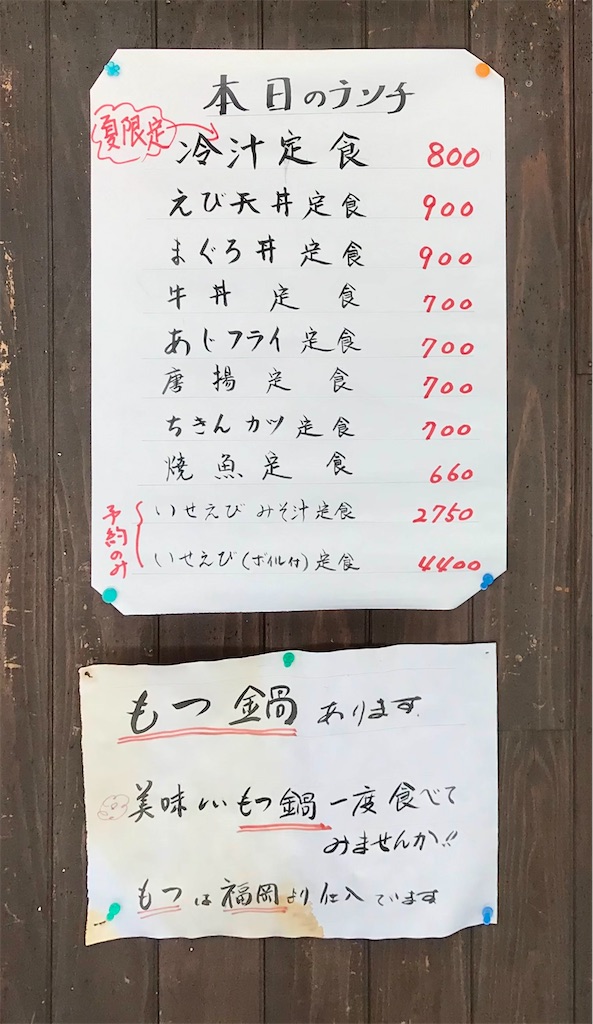 本日のランチ
夏限定
冷汁定食 800
えび天丼定食 900
まぐろ丼定食 900
牛丼定食 700
あじフライ定食 700
唐揚定食 700
ちきんカツ定食 700
焼魚定食 660
予約のみ
いせえびみそ汁定食 2750
いせえび(ボイル付)定食 4400
もつ鍋あります
美味しいもつ鍋一度食べて
みませんか!!
もつは福岡より仕入ています